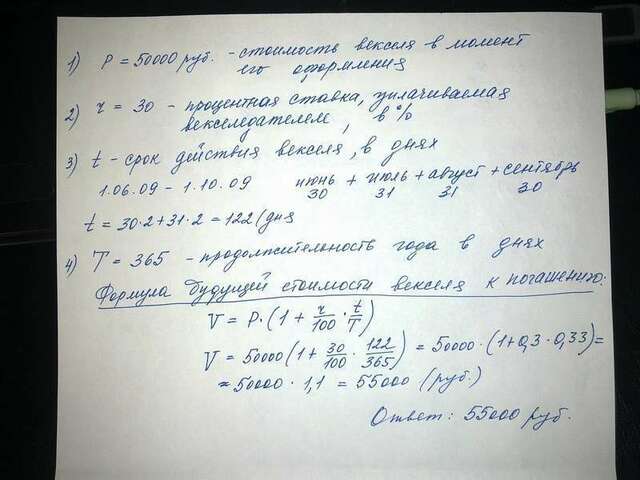 1) P = 50000 руб. - стоимость векселя в момент
его оформления
2) r = 30 - процентная ставка, уплачиваемая
векселедателем, в %
3) t - срок действия векселя, в днях
1.06.09 - 1.10.09 июнь + июль + август + сентябрь
30 31 31 30
t = 30·2 + 31·2 = 122 (дня
4) T = 365 - продолжительность года в днях
Формула будущей стоимости векселя к погашению:
V = P·(1 + r/100 · t/T)
V = 50000(1 + 30/100 · 122/365) = 50000·(1+0,3·0,33) =
= 50000 · 1,1 = 55000 (руб.)
Ответ: 55000 руб.